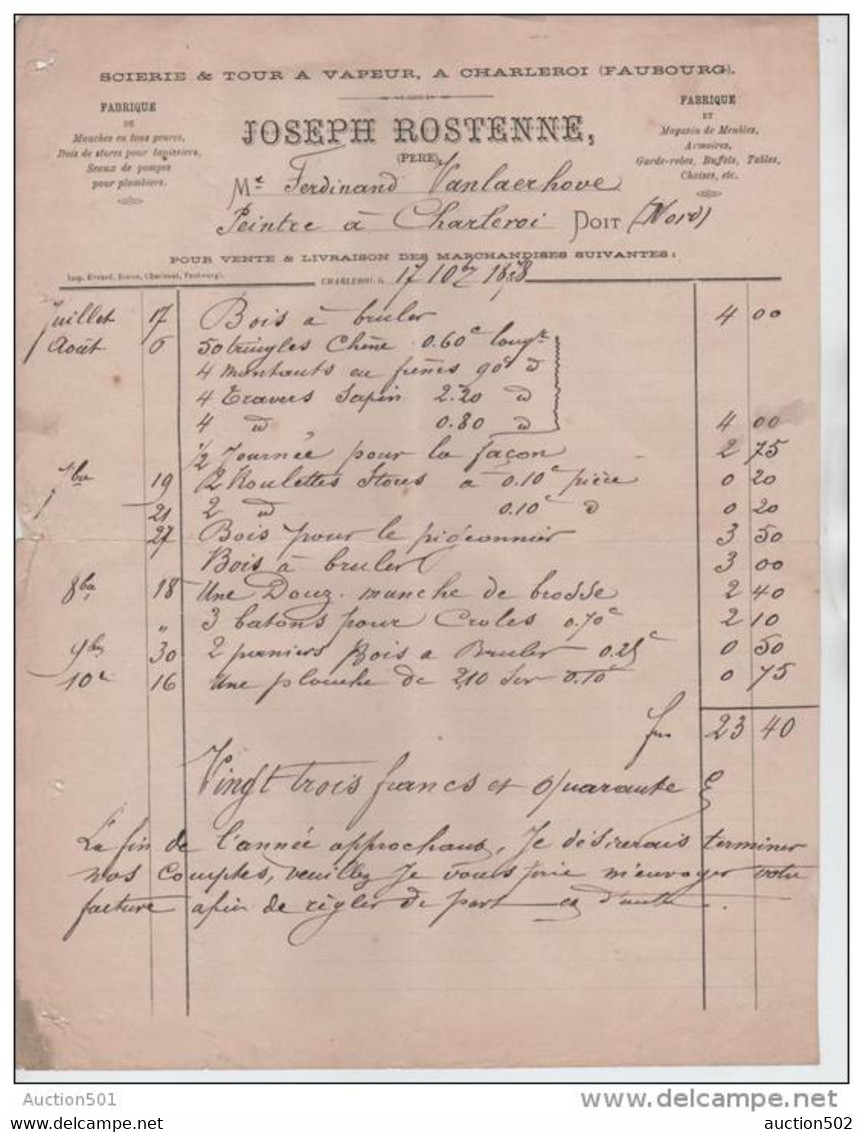 SCIERIE & TOUR A VAPEUR, A CHARLEROI (FAUBOURG).
FABRIQUE
DE
Manches en tous genres,
Bois de stores pour tapissiers,
Seaux de pompes
pour plombiers.
JOSEPH ROSTENNE,
(PERE),
FABRIQUE
ET
Magasin de Meubles,
Armoires,
Garde-robes, Buffets, Tables,
Chaises, etc.
Mr Ferdinand Vanlaerhove
Peintre à Charleroi DOIT (Nord)
POUR VENTE & LIVRAISON DES MARCHANDISES SUIVANTES:
CHARLEROI, le 17 10bre 1878
Juillet 17 Bois à bruler 4 00
Août 6 50 tringles Chêne 0.60c longr
4 montants en frênes 90c d
4 Travers Sapin 2.20 d
4 d 0.80 d 4 00
1/2 Journée pour la façon 2 75
7bre 19 2 Roulettes Stores à 0.10c pièce 0 20
21 2 d 0.10c d 0 20
27 Bois pour le pigeonnier 3 50
Bois à bruler 3 00
8bre 18 Une Douz. manche de brosse 2 40
" 3 batons pour 0.70c 2 10
9bre 30 2 paniers Bois a Bruler 0.25c 0 50
10e 16 Une planche de 2,10 Sur 0.10 0 75
frs 23 40
Vingt trois francs et quarante c
La fin de l'année approchant, Je désirerais terminer
nos Comptes, veuillez Je vous prie m'envoyer votre
facture afin de règler de part et d'autre.
Auction501
delcampe.net
Auction501
auction502